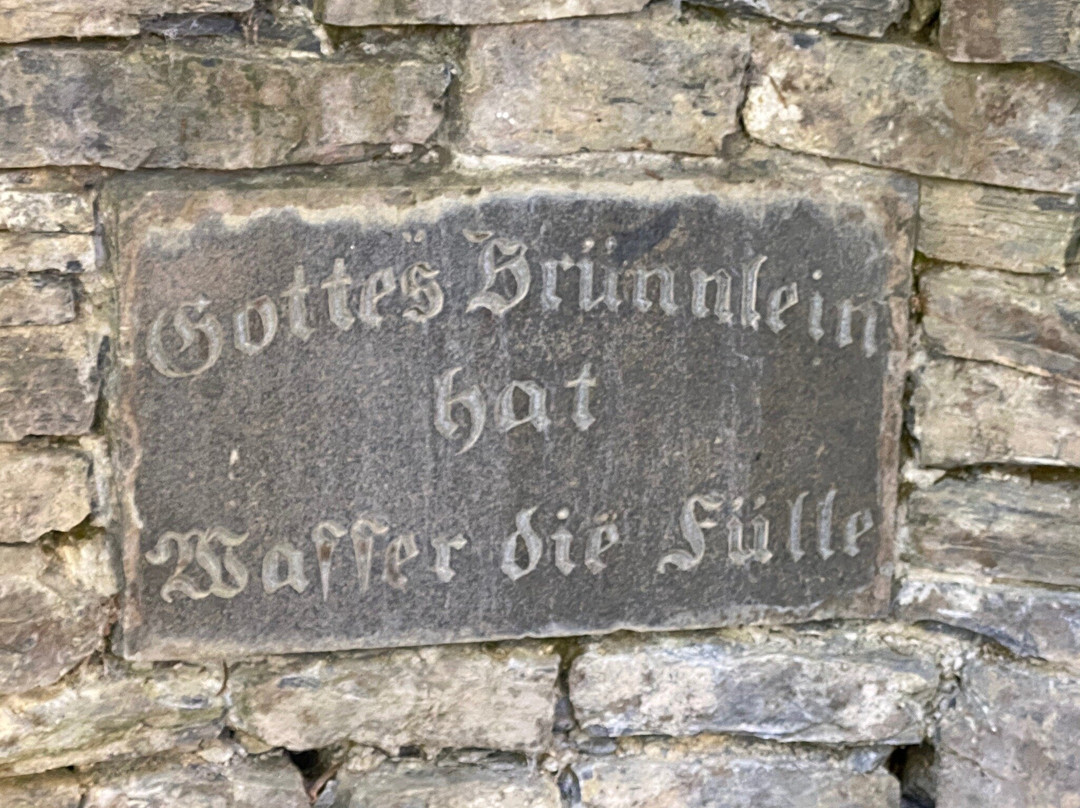 Gottes Brünnlein
hat
Waſſer die Fülle